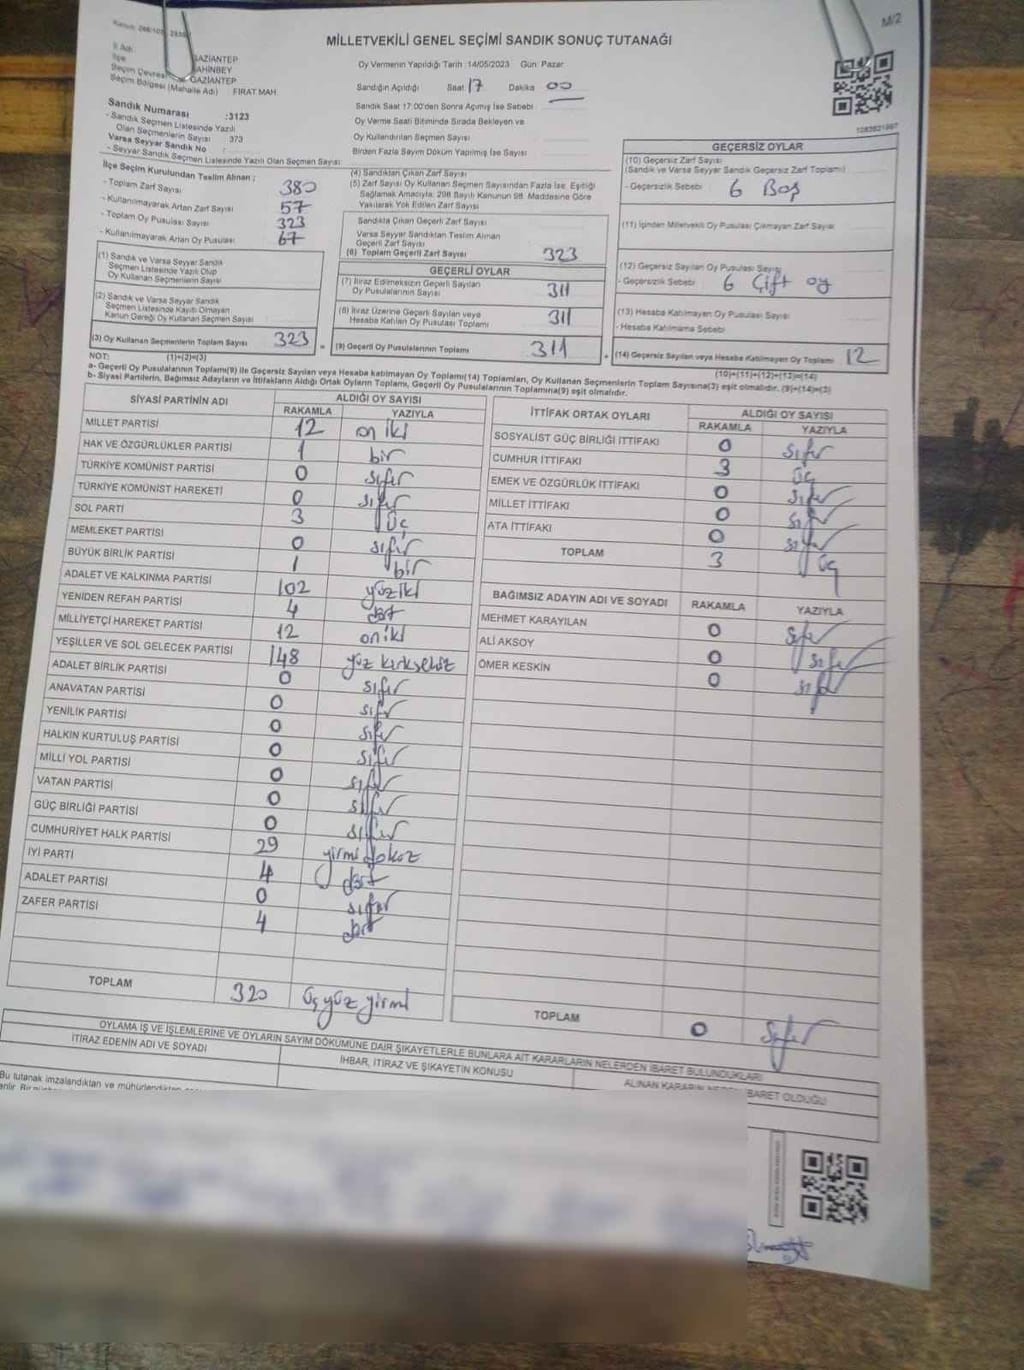 M/2
MİLLETVEKİLİ GENEL SEÇİMİ SANDIK SONUÇ TUTANAĞI
İl Adı : GAZİANTEP
İlçe ŞAHİNBEY
Seçim Çevresi GAZİANTEP
Seçim Bölgesi (Mahalle Adı) FIRAT MAH.
Sandık Numarası :3123
- Sandık Seçmen Listesinde Yazılı
Olan Seçmenlerin Sayısı 373
Varsa Seyyar Sandık No :
- Seyyar Sandık Seçmen Listesinde Yazılı Olan Seçmen Sayısı:
Oy Vermenin Yapıldığı Tarih :14/05/2023 Gün: Pazar
Sandığın Açıldığı Saat 17 Dakika 00
Sandık Saat 17:00'den Sonra Açmış İse Sebebi
Oy Verme Saati Bitiminde Sırada Bekleyen ve
Oy Kullandırılan Seçmen Sayısı
Birden Fazla Sayım Döküm Yapılmış İse Sayısı
İlçe Seçim Kurulundan Teslim Alınan ;
- Toplam Zarf Sayısı 380
- Kullanılmayarak Artan Zarf Sayısı 57
- Toplam Oy Pusulası Sayısı 323
- Kullanılmayarak Artan Oy Pusulası 67
(1) Sandık ve Varsa Seyyar Sandık
Seçmen Listesinde Yazılı Olup
Oy Kullanan Seçmenlerin Sayısı
(2) Sandık ve Varsa Seyyar Sandık
Seçmen Listesinde Kayıtlı Olmayan
Kanun Gereği Oy Kullanan Seçmen Sayısı
(3) Oy Kullanan Seçmenlerin Toplam Sayısı 323
(4) Sandıktan Çıkan Zarf Sayısı
(5) Zarf Sayısı Oy Kullanan Seçmen Sayısından Fazla İse, Eşitliği
Sağlamak Amacıyla, 298 Sayılı Kanunun 98. Maddesine Göre
Yakılarak Yok Edilen Zarf Sayısı
Sandıkta Çıkan Geçerli Zarf Sayısı
Varsa Seyyar Sandıktan Teslim Alınan
Geçerli Zarf Sayısı
(6) Toplam Geçerli Zarf Sayısı 323
GEÇERLİ OYLAR
(7) İtiraz Edilmeksizin Geçerli Sayılan
Oy Pusulalarının Sayısı 311
(8) İtiraz Üzerine Geçerli Sayılan veya
Hesaba Katılan Oy Pusulası Toplamı 311
(9) Geçerli Oy Pusulalarının Toplamı 311
GEÇERSİZ OYLAR
(10) Geçersiz Zarf Sayısı
(Sandık ve Varsa Seyyar Sandık Geçersiz Zarf Toplamı)
- Geçersizlik Sebebi 6 Boş
(11) İçinden Milletvekili Oy Pusulası Çıkmayan Zarf Sayısı
(12) Geçersiz Sayılan Oy Pusulası Sayısı
- Geçersizlik Sebebi 6 Çift oy
(13) Hesaba Katılmayan Oy Pusulası Sayısı
- Hesaba Katılmama Sebebi
(14) Geçersiz Sayılan veya Hesaba Katılmayan Oy Toplamı 12
NOT: (1)+(2)=(3) (10)+(11)+(12)+(13)=(14)
a- Geçerli Oy Pusulalarının Toplamı(9) ile Geçersiz Sayılan veya Hesaba katılmayan Oy Toplamı(14) Toplamları, Oy Kullanan Seçmenlerin Toplam Sayısına(3) eşit olmalıdır. (9)+(14)=(3)
b- Siyasi Partilerin, Bağımsız Adayların ve İttifakların Aldığı Ortak Oyların Toplamı, Geçerli Oy Pusulalarının Toplamına(9) eşit olmalıdır.
SİYASİ PARTİNİN ADI ALDIĞI OY SAYISI
RAKAMLA YAZIYLA
MİLLET PARTİSİ 12 on iki
HAK VE ÖZGÜRLÜKLER PARTİSİ 1 bir
TÜRKİYE KOMÜNİST PARTİSİ 0 sıfır
TÜRKİYE KOMÜNİST HAREKETİ 0 sıfır
SOL PARTİ 3 üç
MEMLEKET PARTİSİ 0 sıfır
BÜYÜK BİRLİK PARTİSİ 1 bir
ADALET VE KALKINMA PARTİSİ 102 yüziki
YENİDEN REFAH PARTİSİ 4 dört
MİLLİYETÇİ HAREKET PARTİSİ 12 oniki
YEŞİLLER VE SOL GELECEK PARTİSİ 148 yüz kırksekiz
ADALET BİRLİK PARTİSİ 0 sıfır
ANAVATAN PARTİSİ 0 sıfır
YENİLİK PARTİSİ 0 sıfır
HALKIN KURTULUŞ PARTİSİ 0 sıfır
MİLLİ YOL PARTİSİ 0 sıfır
VATAN PARTİSİ 0 sıfır
GÜÇ BİRLİĞİ PARTİSİ 0 sıfır
CUMHURİYET HALK PARTİSİ 29 yirmi dokuz
İYİ PARTİ 4 dört
ADALET PARTİSİ 0 sıfır
ZAFER PARTİSİ 4 dört
TOPLAM 320 üçyüz yirmi
İTTİFAK ORTAK OYLARI ALDIĞI OY SAYISI
RAKAMLA YAZIYLA
SOSYALİST GÜÇ BİRLİĞİ İTTİFAKI 0 sıfır
CUMHUR İTTİFAKI 3 üç
EMEK VE ÖZGÜRLÜK İTTİFAKI 0 sıfır
MİLLET İTTİFAKI 0 sıfır
ATA İTTİFAKI 0 sıfır
TOPLAM 3 üç
BAĞIMSIZ ADAYIN ADI VE SOYADI RAKAMLA YAZIYLA
MEHMET KARAYILAN 0 sıfır
ALİ AKSOY 0 sıfır
ÖMER KESKİN 0 sıfır
TOPLAM 0 sıfır
OYLAMA İŞ VE İŞLEMLERİNE VE OYLARIN SAYIM DÖKÜMÜNE DAİR ŞİKAYETLERLE BUNLARA AİT KARARLARIN NELERDEN İBARET BULUNDUKLARI
İTİRAZ EDENİN ADI VE SOYADI İHBAR, İTİRAZ VE ŞİKAYETİN KONUSU ALINAN KARARIN NEDEN İBARET OLDUĞU
Bu tutanak imzalandıktan ve mühürlendikten